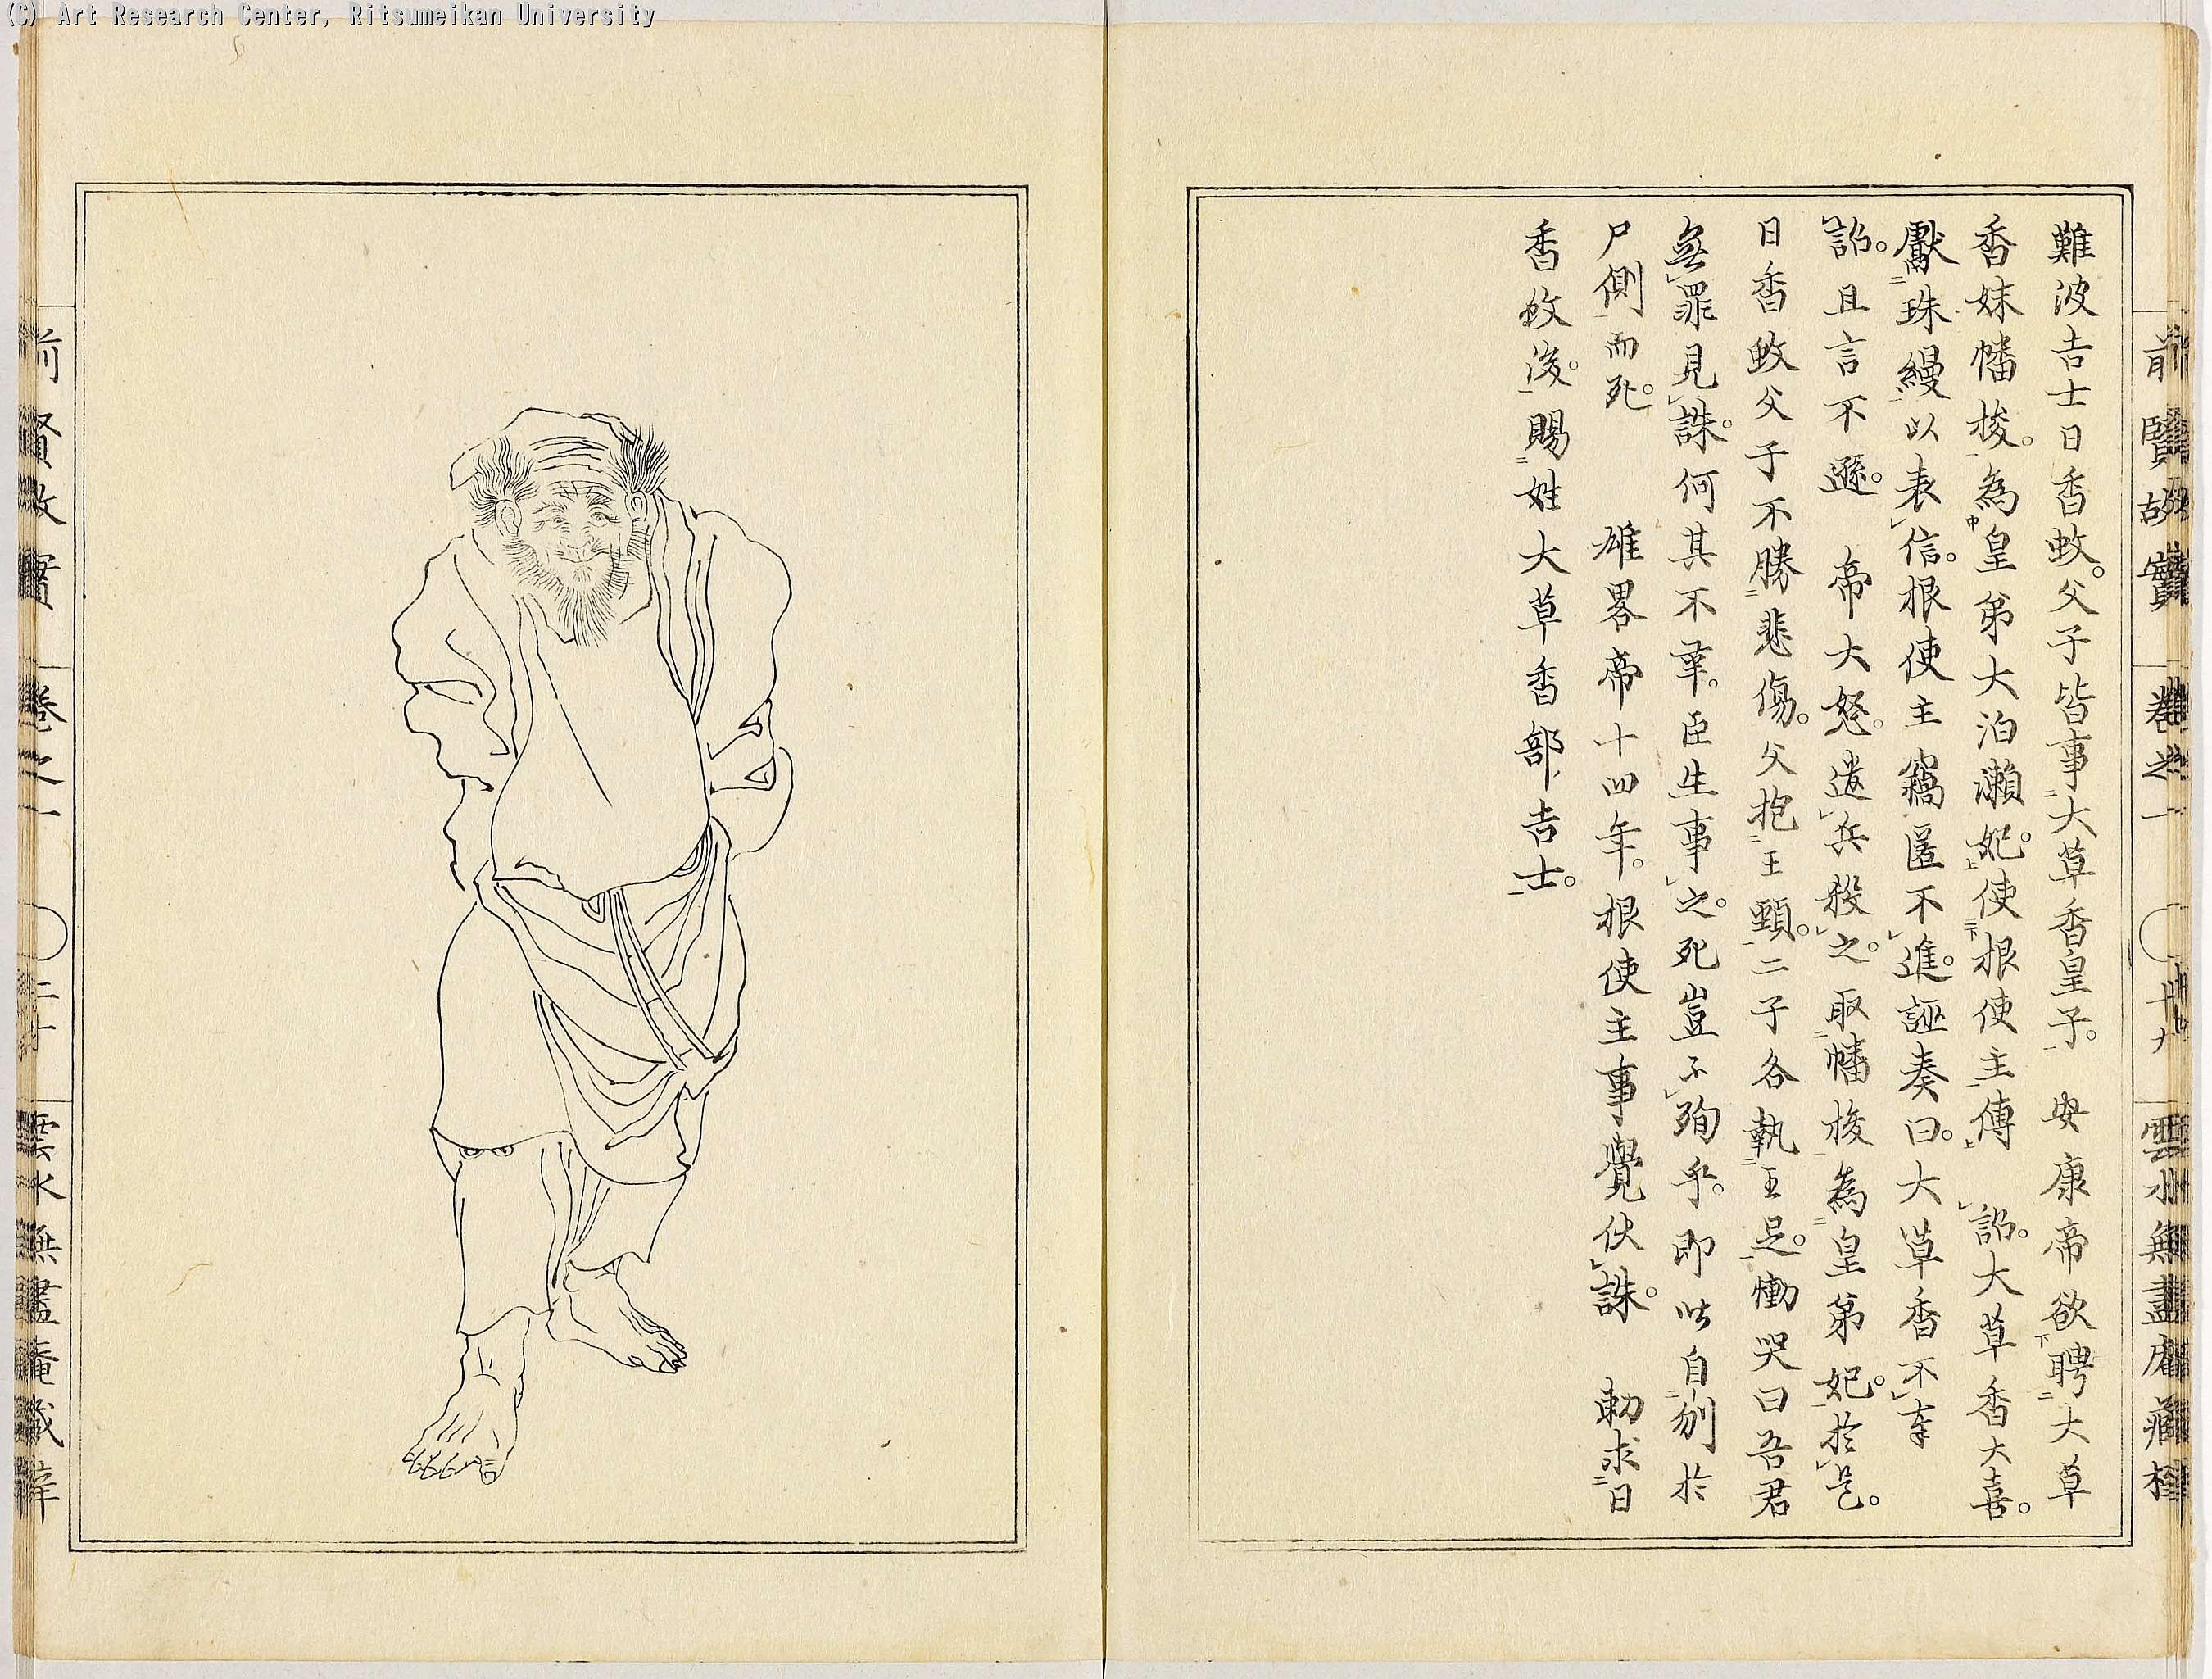 (C) Art Research Center, Ritsumeikan University
前賢故實 卷之一 十九 雲水無盡庵藏梓
難波吉士日香蚊。父子皆事大草香皇子。 安康帝欲聘大草
香妹幡梭。為皇弟大泊瀬妃。使根使主傳 詔。大草香大喜。
獻珠縵以表信。根使主竊匿不進。誣奏曰。大草香不奉
詔。且言不遜。 帝大怒。遣兵殺之。取幡梭為皇弟妃。於是。
日香蚊父子不勝悲傷。父抱王頸。二子各執王足。慟哭曰吾君
無罪見誅。何其不幸。臣生事之。死豈不殉乎。即皆自刎於
尸側而死。 雄畧帝十四年。根使主事覺伏誅。 勅求日
香蚊後。賜姓大草香部吉士。
前賢故實 卷之一 二十 雲水無盡庵藏梓